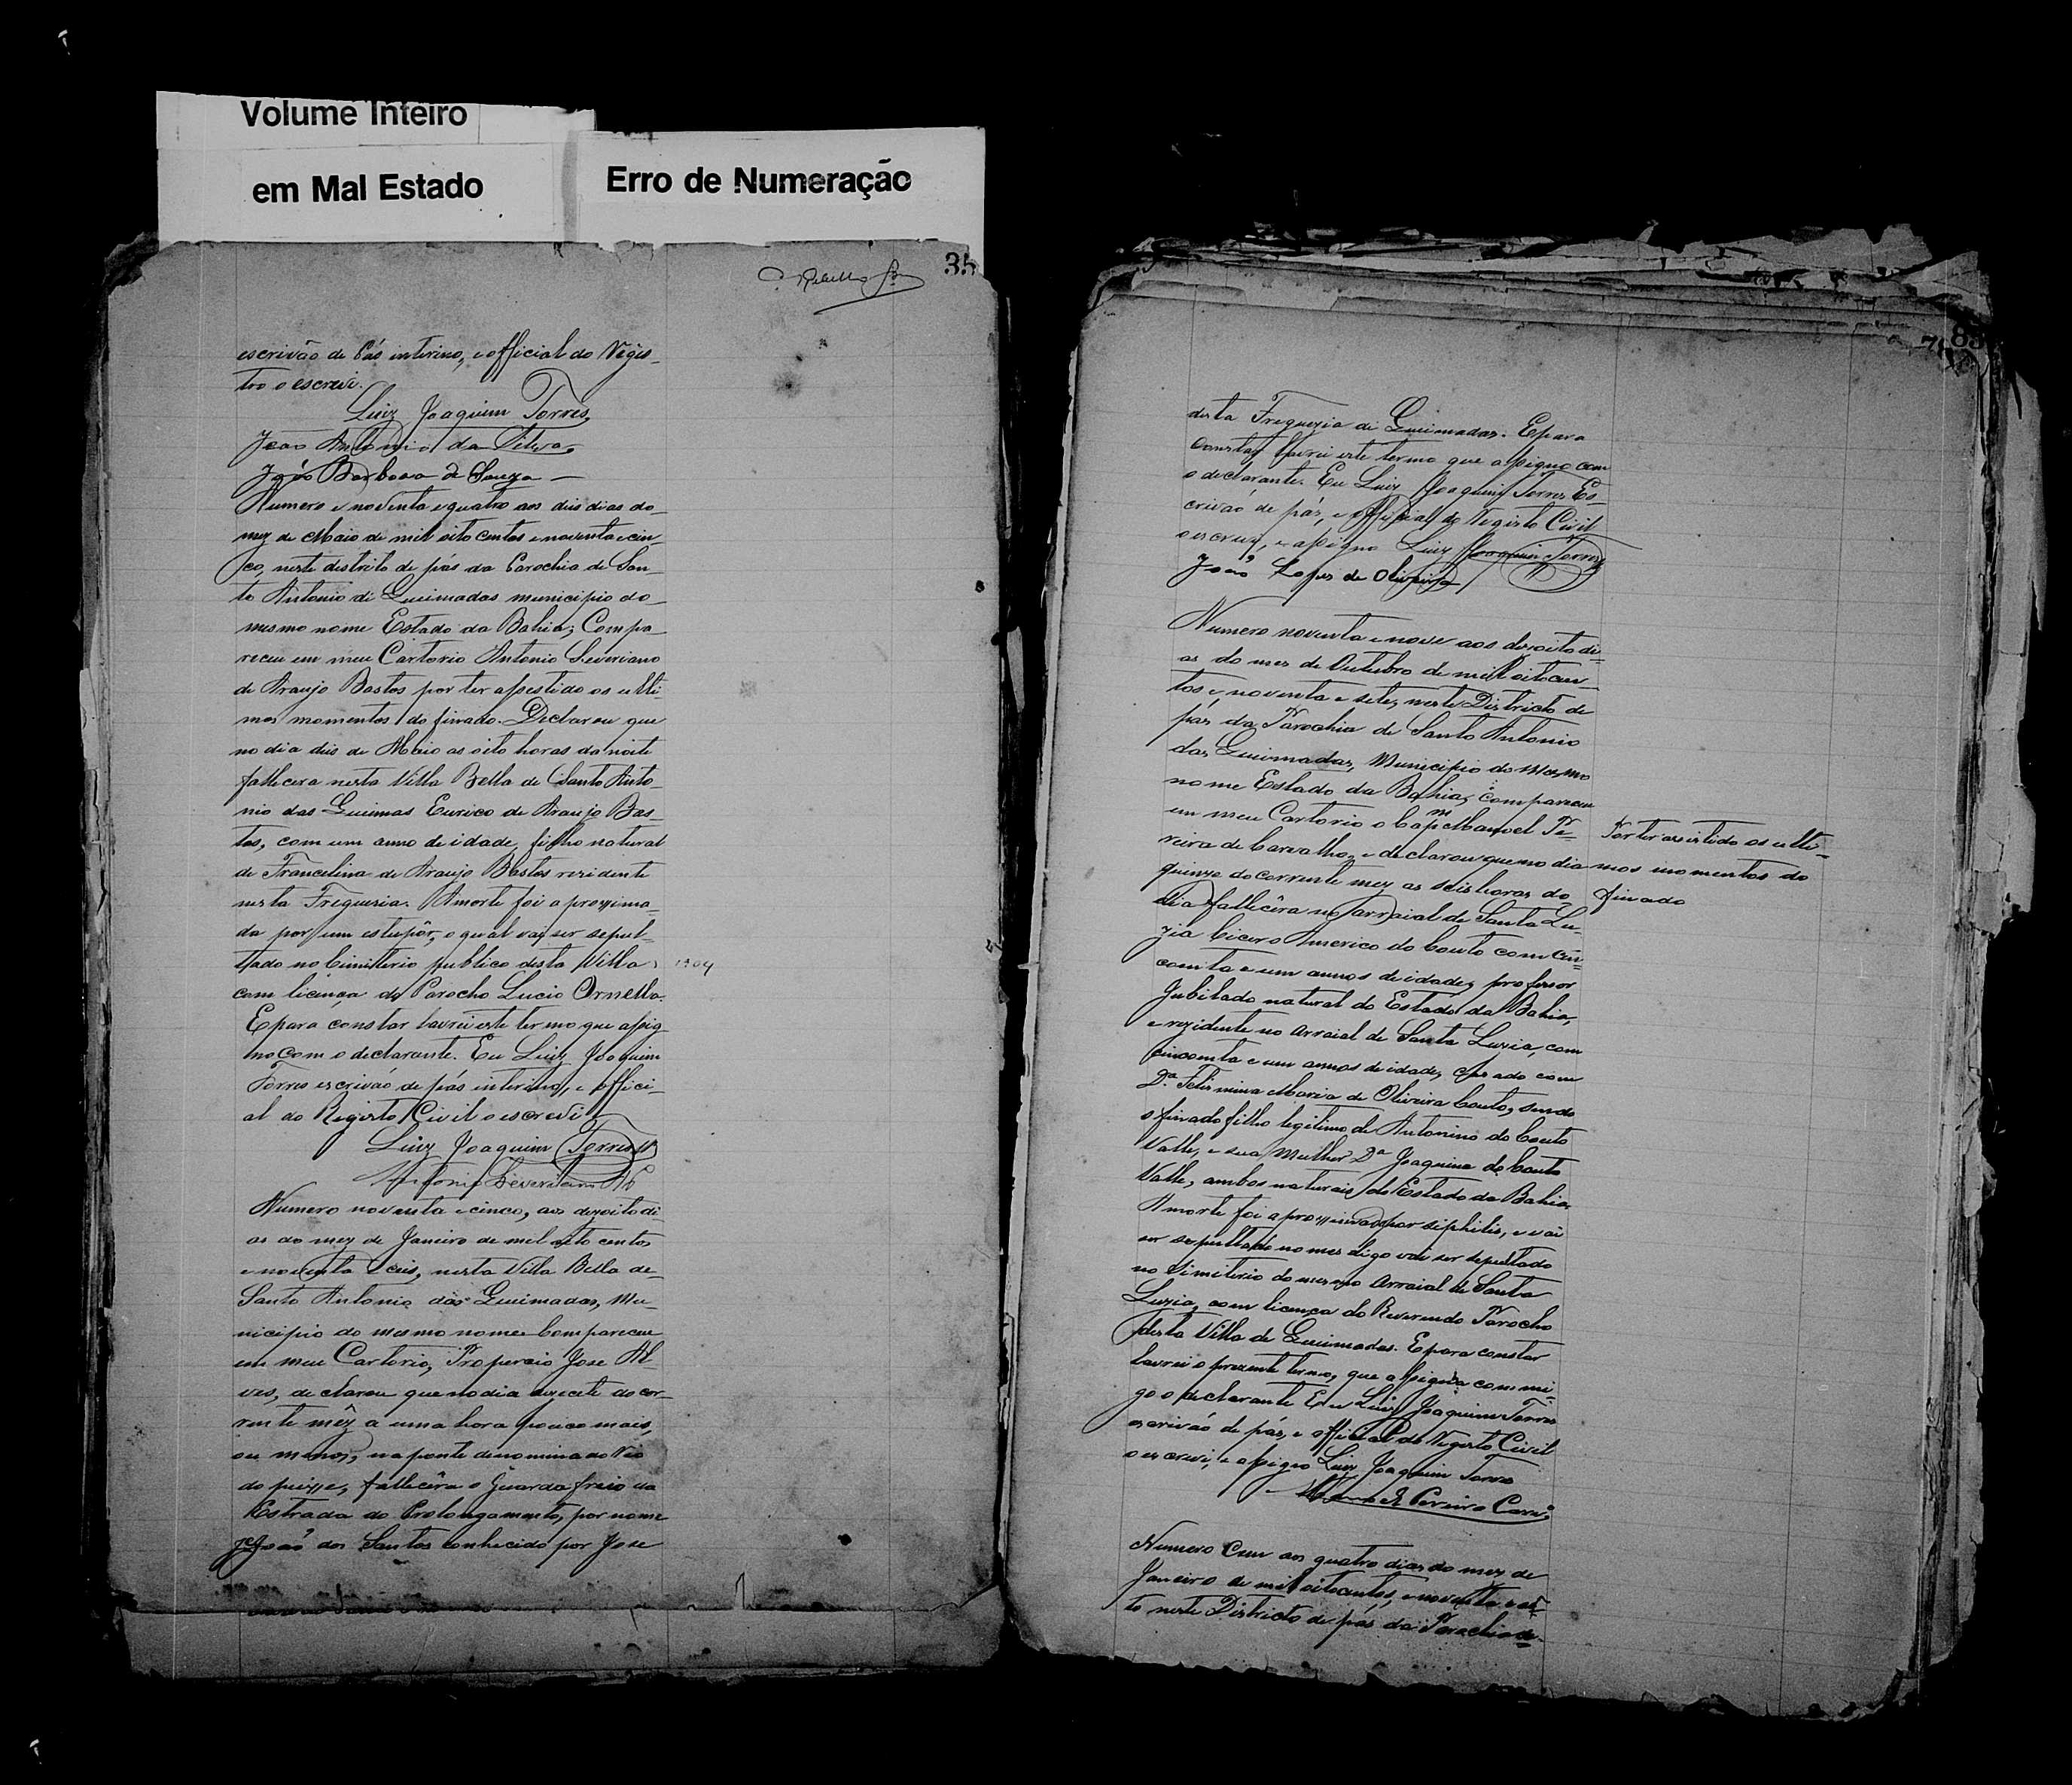 Volume Inteiro
em Mal Estado
Erro de Numeração
35
escrivão de Pás interino, e official do Regis-
tro o escrevi.
Luiz Joaquim Torres
João Antonio da Silva
João Barboza de Souza
Numero e noventa e quatro aos dois dias do
mez de Maio de mil oito centos e noventa e cin-
co, neste distrito de pás da Parochia de San-
to Antonio di Queimadas municipio do
mesmo nome Estado da Bahia; Compa
receu em meu Cartorio Antonio Severiano
de Araujo Bastos por ter assestido os ulti
mos momentos do finado. Declarou que
no dia dois de Maio as oito horas da noite
fallecera nesta Villa Bella de Santo Anto-
nio das Queimas Eurico de Araujo Bas-
tos, com um anno de idade, filho natural
de Francelina de Araujo Bastos rezidente
nesta Freguezia. A morte foi aproxima-
da por um estupôr, o qual vai ser sepul-
tado no Cimiterio publico desta Villa,
com licença do Parocho Lucio Ornella.
E para constar lavrei este termo que assig
no com o declarante. Eu Luiz Joaquim
Torres escrivão de pás interino, e offici-
al do Registo Civil o escrevi
Luiz Joaquim Torres
Antonio Severiano
Numero noventa e cinco, aos dezoito di-
as do mez de Janeiro de mil oito centos
e noventa e seis, nesta Villa Bella de
Santo Antonio das Queimadas, Mu-
nicipio do mesmo nome Compareceu
em meu Cartorio, Propercio Jose Al-
ves, declarou que no dia dezecete do cor-
rente mêz a uma hora pouco mais,
ou menos, na ponte denominado Rio
do peixe, fallecêra o Guarda freio da
Estrada do Prolongamento, por nome
João dos Santos conhecido por Jose
desta Freguezia di Queimadas. E para
constar lavrei este termo que assigno com
o declarante. Eu Luiz Joaquim Torres Es-
crivão de pás, e official do Registo Civil
o escrevi, e assigno Luiz Joaquim Torres
João Lopes de Oliveira
Numero noventa e nove aos dezoito di-
as do mes de Outubro de mil oitocen-
tos e noventa e sete, neste Districto de
pás da Parochia de Santo Antonio
das Queimadas, Municipio do mesmo
nome Estado da Bahia, compareceu
em meu Cartorio o Capm Manoel Pe-
reira de Carvalho, e declarou que no dia
quinze do corrente mez as seis horas do
dia fallecêra no arraial de Santa Lu-
zia Cicero Americo do Couto com cin-
coenta e um annos de idade, professor
Jubilado natural do Estado da Bahia,
e rezidente no Arraial de Santa Luzia, com
cincoenta e um annos de idade, casado com
Da Felismina Maria de Oliveira Couto, sendo
o finado filho legitimo de Antonino do Couto
Valle, e sua Mulher Da Joaquina do Couto
Valle, ambos naturais do Estado da Bahia
A morte foi aproximada por siphilis, e vai
ser sepultado no mes digo vai ser sepultado
no Simiterio do mesmo Arraial de Santa
Luzia, com licença do Reverendo Parocho
desta Villa de Queimadas. E para constar
lavrei o prezente termo, que assigna commi-
go o declarante Eu Luiz Joaquim Torres
escrivão de pás, e official do Registo Civil
o escrevi, e assigno Luiz Joaquim Torres
Manoel Pereira Carvº
Por ter assistido os ulti-
mos momentos do
finado
Numero Cem aos quatro dias do mez de
Janeiro de mil oitocentos, e noventa e oi-
to neste Districto de pás da Parochia de